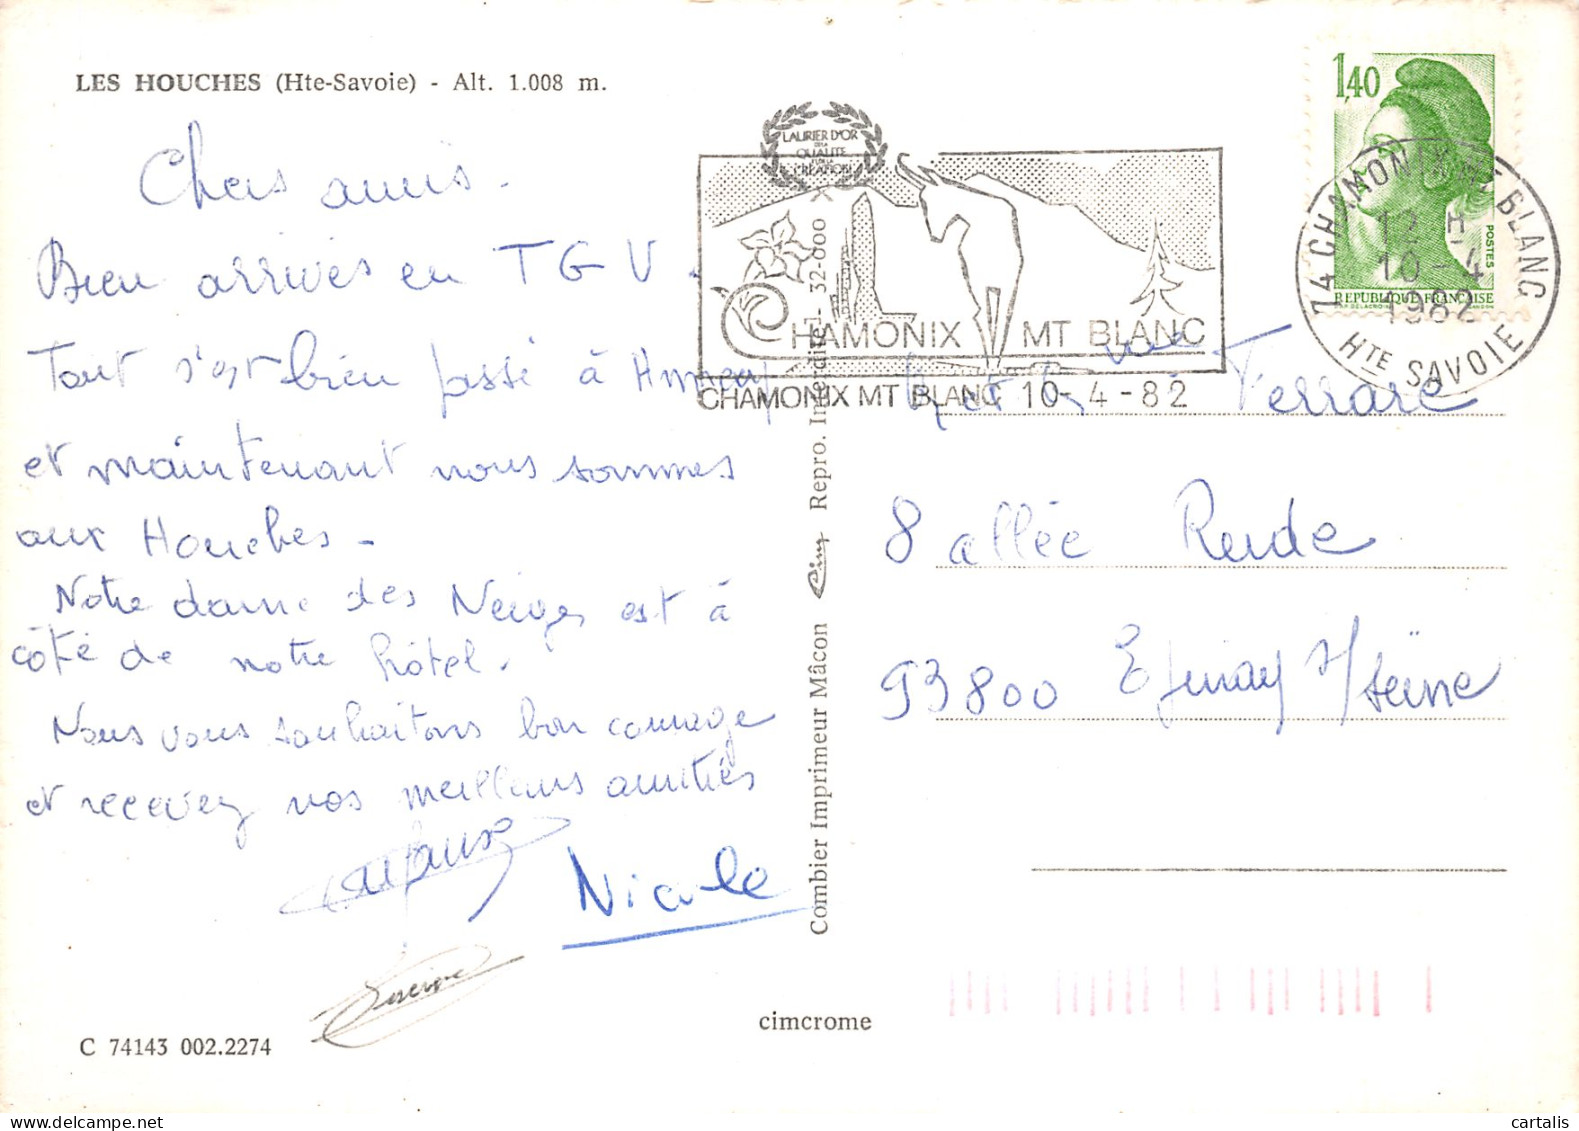 LES HOUCHES (Hte-Savoie) - Alt. 1.008 m.
Chers amis.
Bien arrivés en TGV.
Tout s'est bien passé à Annecy
et maintenant nous sommes
aux Houches -
Notre dame des Neiges est à
côté de notre hôtel.
Nous vous souhaitons bon courage
et recevez nos meilleurs amitiés
Nicole
C 74143 002.2274
cimcrome
Combier Imprimeur Mâcon Cim Repro. Interdite - 32-000
LAURIER D'OR
DE LA
QUALITE
ET DE LA
CREATION
CHAMONIX MT BLANC
CHAMONIX MT BLANC 10-4-82
1,40
POSTES
REPUBLIQUE FRANÇAISE
74 CHAMONIX MT BLANC
12 H
10-4
1982
HTE SAVOIE
Ferrare
8 allée Rude
93800 Epinay s/seine